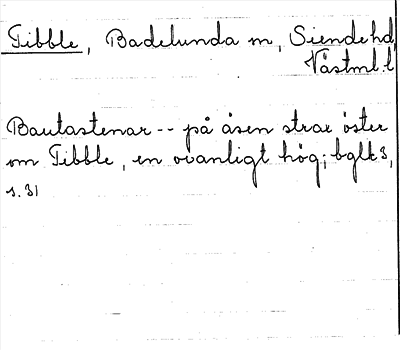 Tibble, Badelunda sn, Siende hd,
Västml. l
Bautastenar -- på åsen strax öster
om Tibble, en ovanligt hög; bglk 3,
s. 31